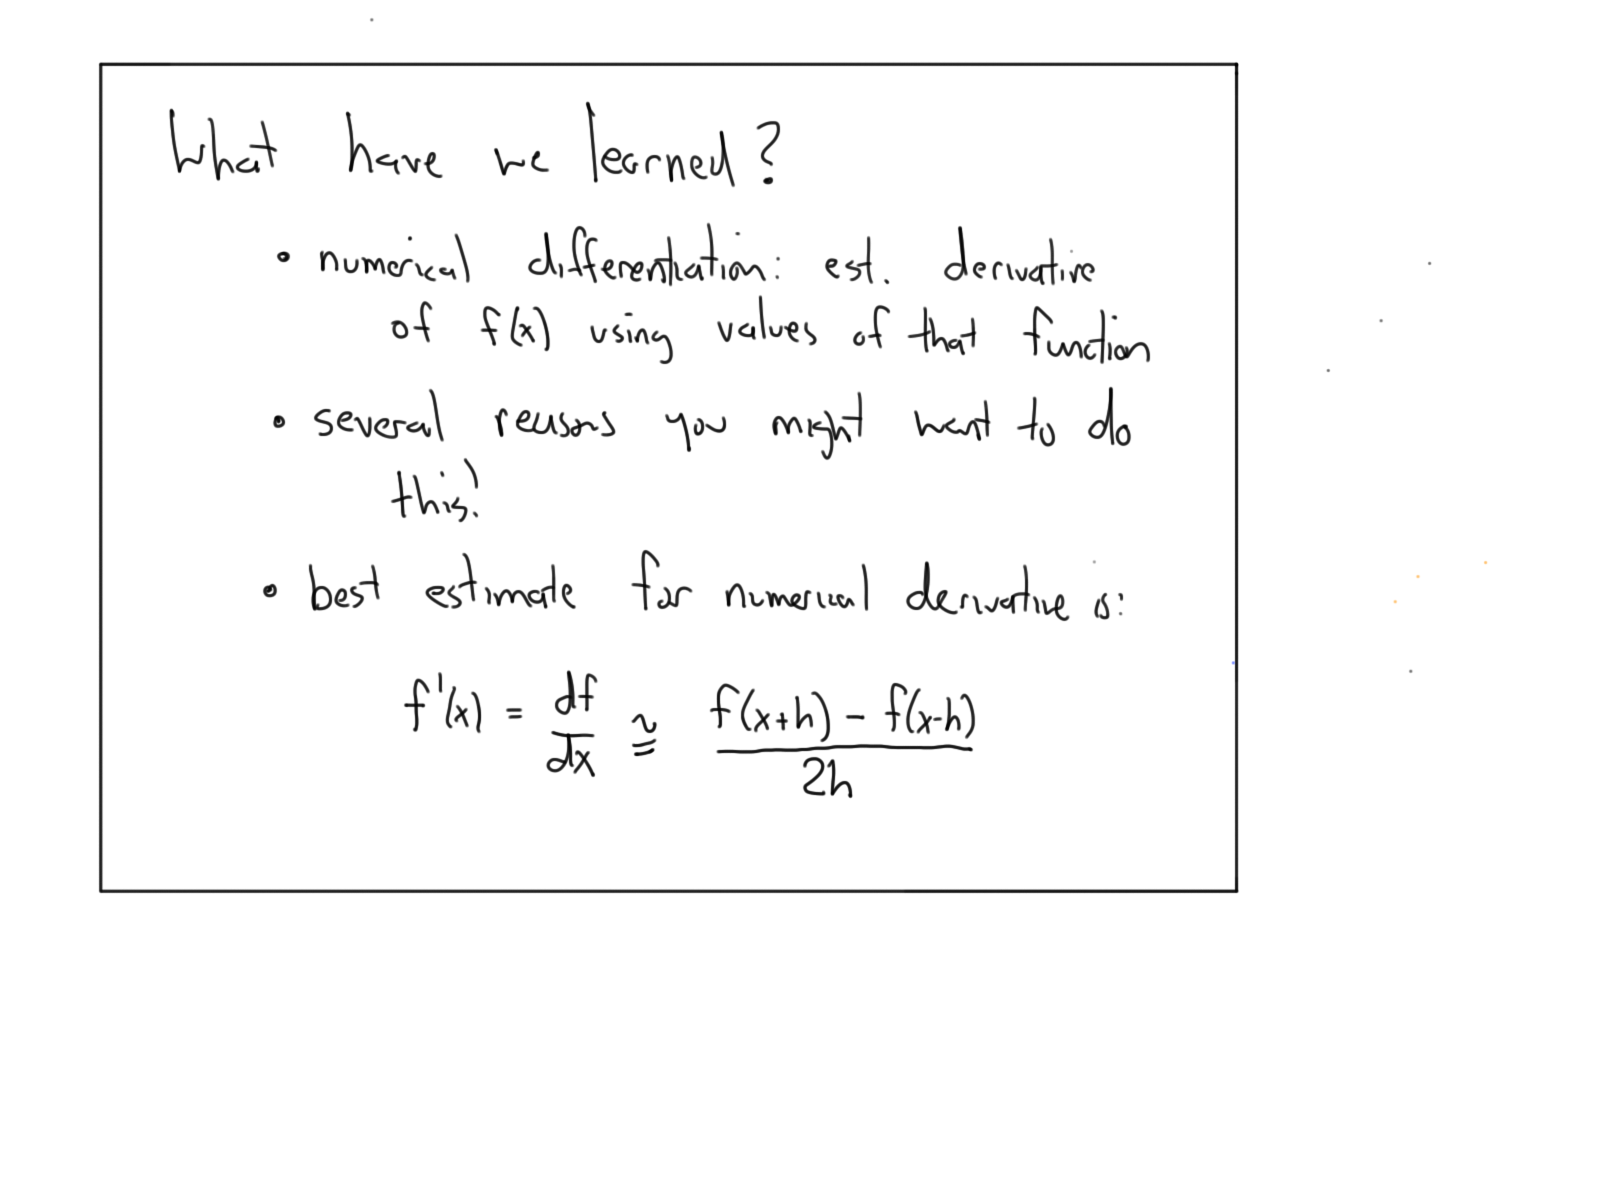 What have we learned?
• numerical differentiation: est. derivative
of f(x) using values of that function
• several reasons you might want to do
this!
• best estimate for numerical derivative is:
f'(x) = df/dx ≅ f(x+h) - f(x-h) / 2h